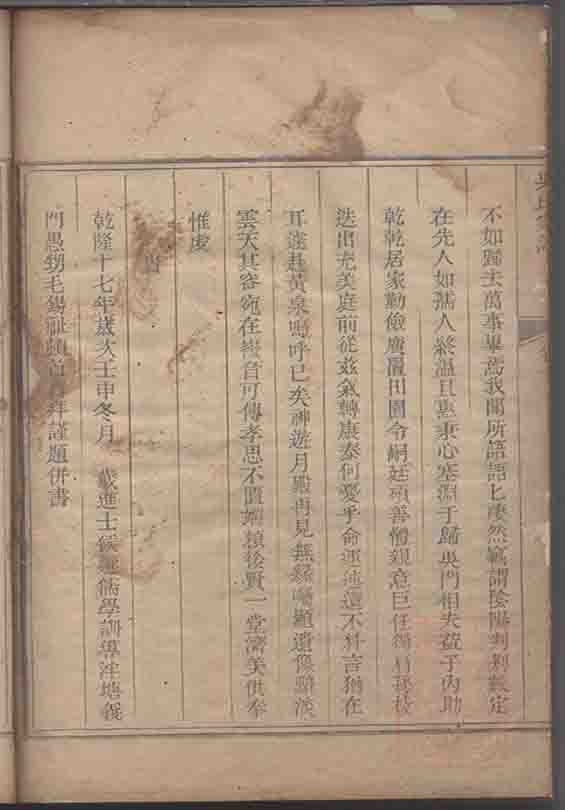 不如歸去萬事畢焉我聞所語語匕悽然竊謂陰陽判剝數定
在先人如孺人終溫且惠秉心塞淵于歸吳門相夫益子內助
乾乾居家勤儉廣置田園令嗣廷碩善體親意巨任獨肩孫枝
迭出充美庭前從茲氣轉康泰何憂乎命運迍邅不料言猶在
耳遽赴黃泉嗚呼已矣神遊月殿再見無緣囑題遺像黯淡
雲天其容宛在徽音可傳孝思不匱端賴後賢一堂濟美供奉
惟虔
旹
乾隆十七年歲次壬申冬月 歲進士候選儒學訓導 塘義
門愚甥毛錫 頓首 拜謹題併書